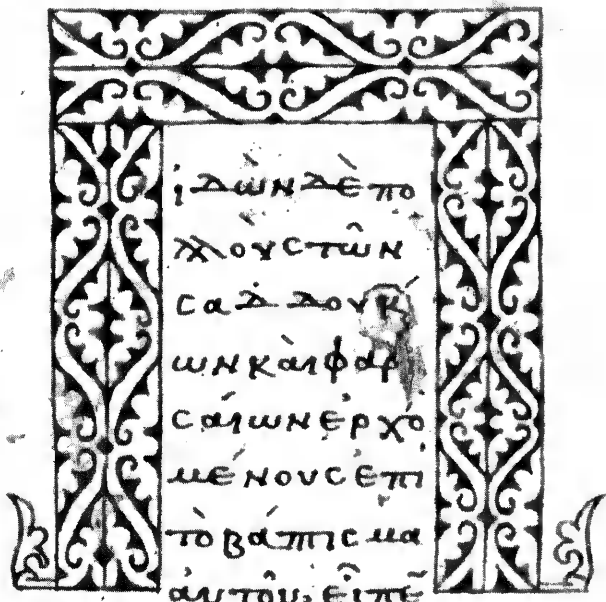 ἰδὼν δὲ πο
λλοὺς τῶν
σαδδουκ
ων καὶ φαρ
σαίων ἐρχό
μένους ἐπι
τὸ βάπτισμα
ἀυτοῦ, εἶπε̄